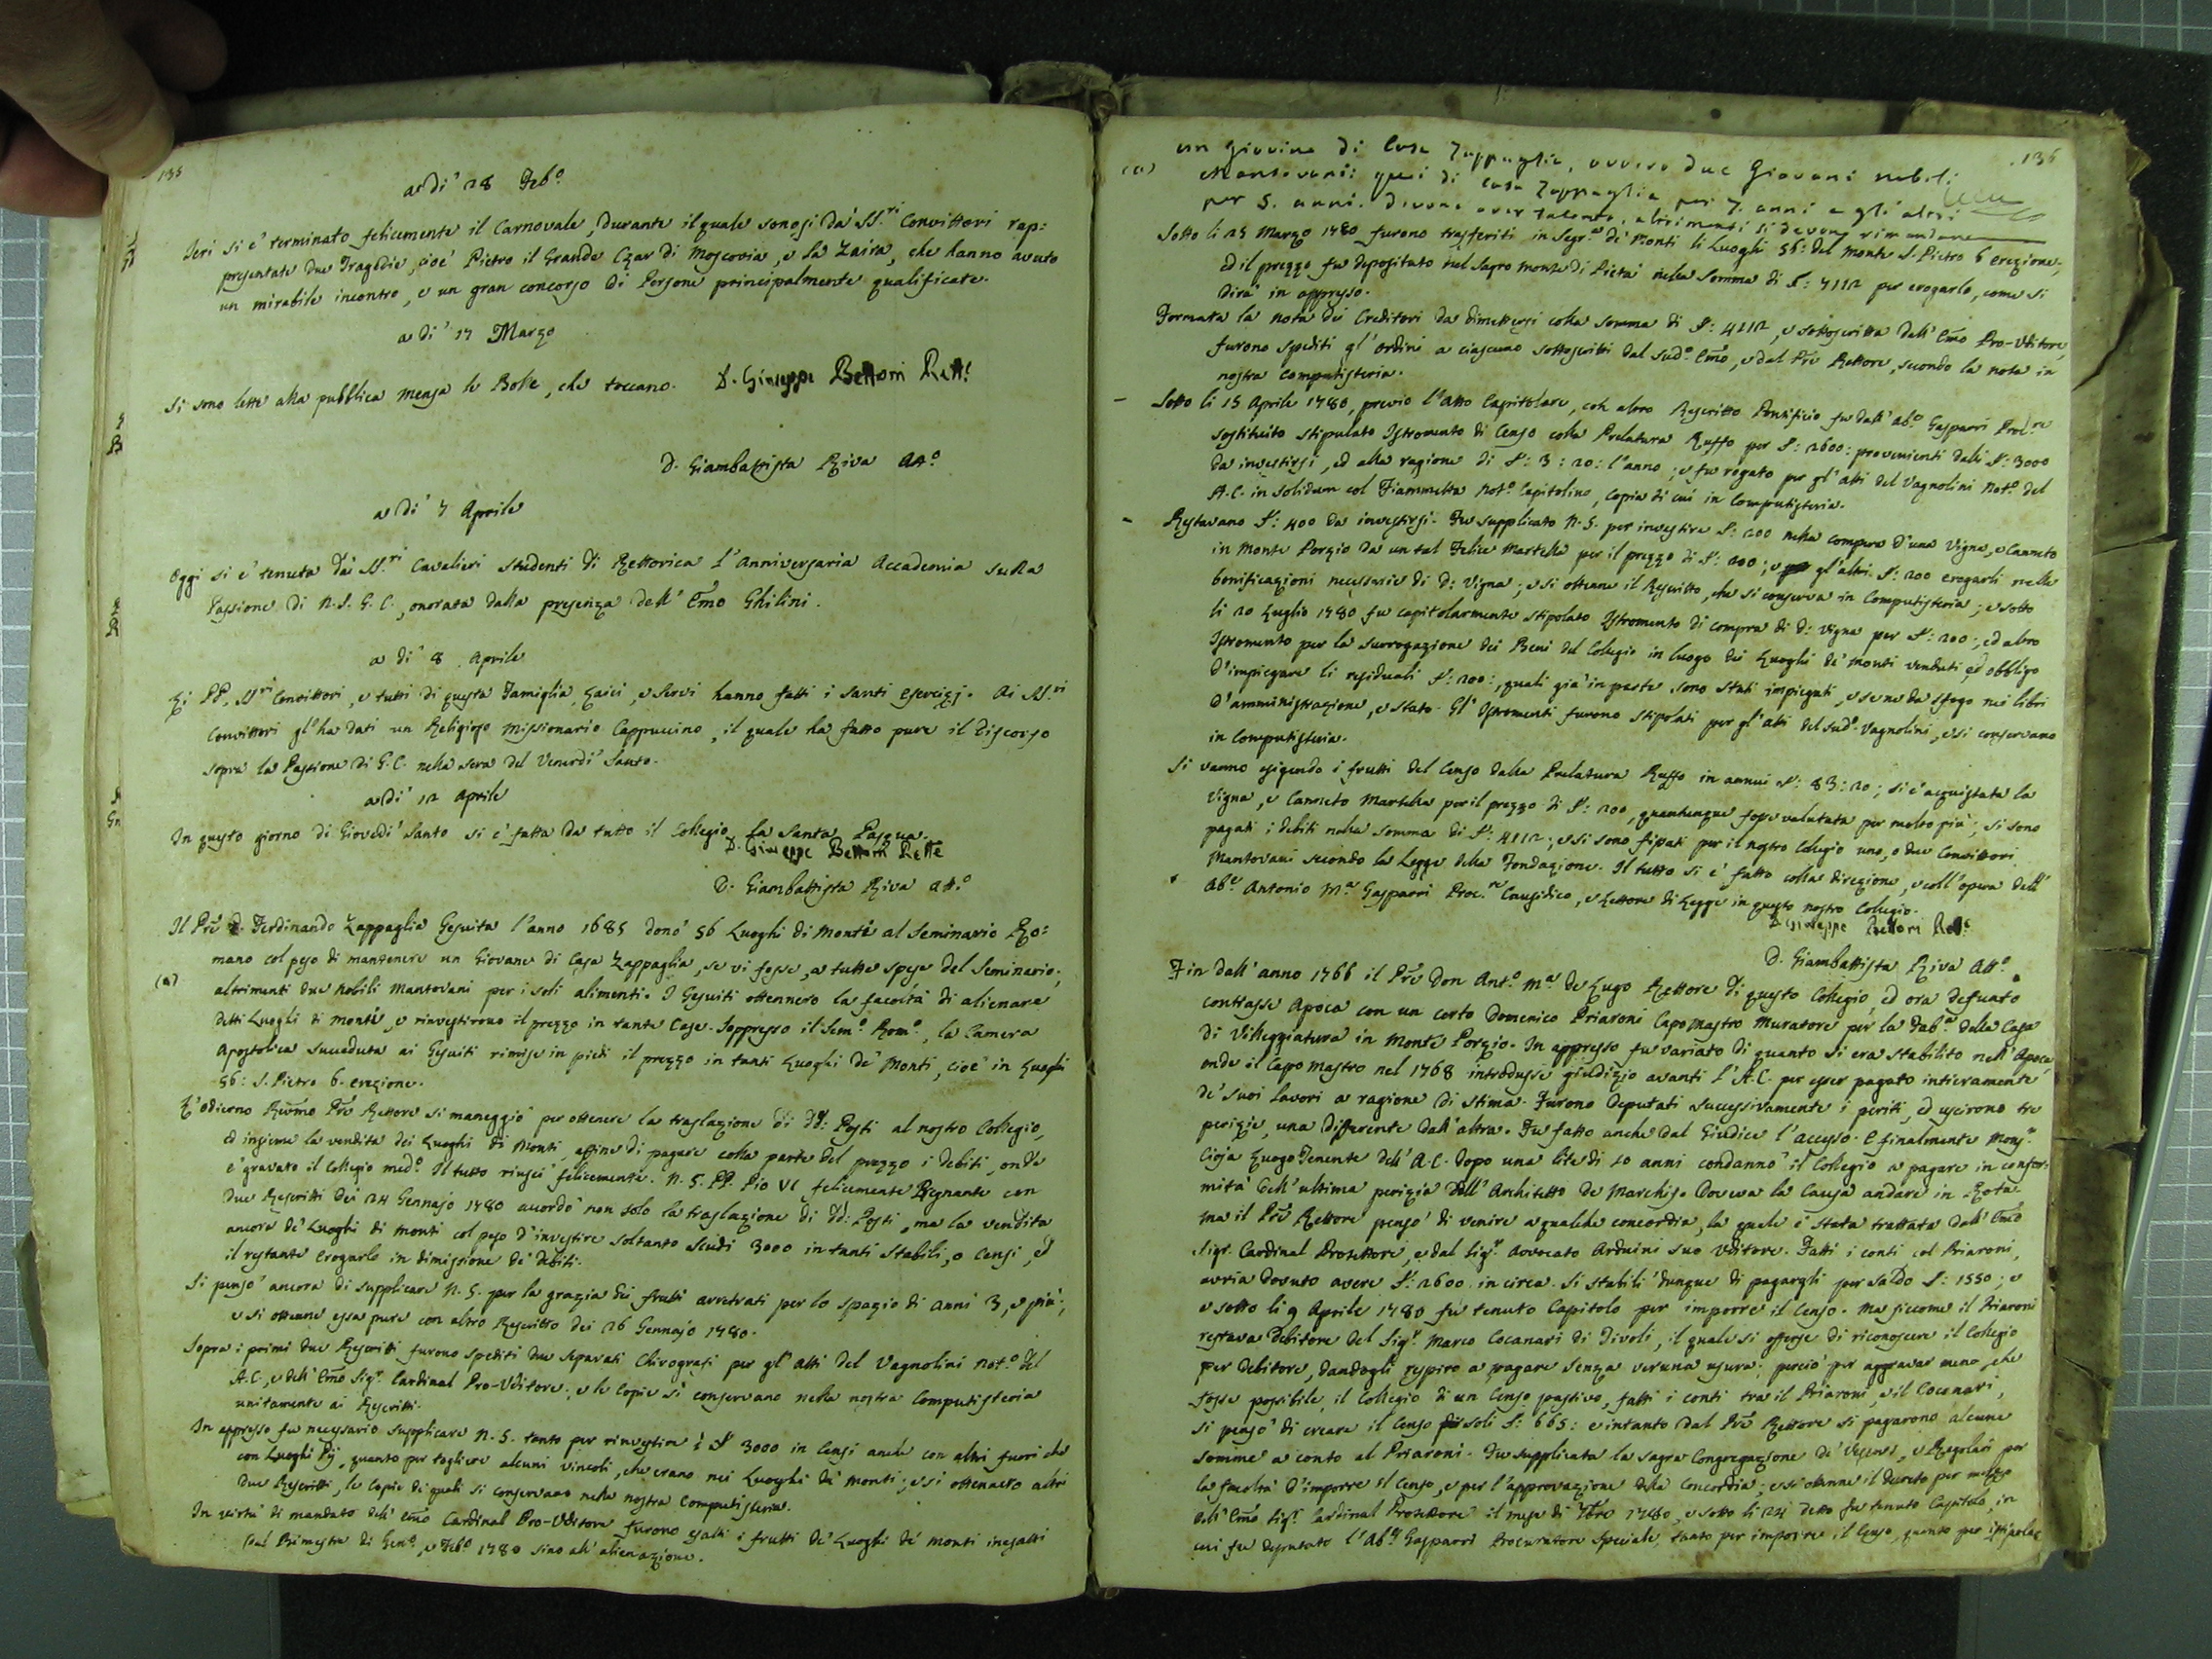 135
a dì 28 Feb.o
Ieri si è terminato felicemente il Carnovale, durante il quale sonosi da' SS.ri Convittori rap:
presentate due Tragedie, cioè Pietro il Grande Czar di Moscovia, e la Zaira, che hanno avuto
un mirabile incontro, e un gran concorso di Persone principalmente qualificate.
a dì 17 Marzo
Si sono lette alla pubblica mensa le Bolle, che toccano. D. Giuseppe Bettoni Rett.e
D. Giambattista Riva Att.o
a dì 7 Aprile
Oggi si è tenuta dai SS.ri Cavalieri studenti di Rettorica l'Anniversaria Accademia sulla
Passione di N.S.G.C., onorata dalla presenza dell' Emo Ghilini.
a dì 8 Aprile
Li PP. SS.ri Convittori, e tutti di questa Famiglia, Laici, e Servi hanno fatti i Santi Esercizj. Ai SS.ri
Convittori gl'ha dati un Religioso Missionario Cappuccino, il quale ha fatto pure il discorso
sopra la Passione di G.C. nella sera del Venerdì Santo.
a dì 12 Aprile
In questo giorno di Giovedì Santo si è fatta da tutto il Collegio la Santa Pasqua.
D. Giuseppe Bettoni Rett.e
D. Giambattista Riva Att.o
Il Prẽ D. Ferdinando Zappaglia Gesuita l'anno 1685 donò 56 Luoghi di Monti al Seminario Ro:
mano col peso di mantenere un Giovane di Casa Zappaglia, se vi fosse, a tutte spese del Seminario;
(a) altrimenti due Nobili Mantovani per i soli alimenti. I Gesuiti ottennero la facoltà di alienare
detti Luoghi di Monti, e rinvestirono il prezzo in tante Case. Soppresso il Sem.o Rom.o, la Camera
Apostolica succeduta ai Gesuiti rimise in piedi il prezzo in tanti Luoghi de' Monti, cioè in Luoghi
56: S. Pietro 6. erezione.
L'odierno Rev̄mo Prẽ Rettore si maneggiò per ottenere la traslazione di dd: Posti al nostro Collegio,
ed insieme la vendita dei Luoghi di Monti, affine di pagare colla parte del prezzo i debiti, onde
è gravato il Collegio med.o Il tutto riuscì felicemente. N.S. PP. Pio VI felicemente Regnante con
due Rescritti dei 24 Gennajo 1780 accordò non solo la traslazione di dd: Posti, ma la vendita
ancora de' Luoghi di Monti col peso d'investire soltanto Scudi 3000 in tanti Stabili, o Censi, ed
il restante erogarlo in dimissione de' debiti.
Si pensò ancora di supplicare N.S. per la grazia dei frutti arretrati per lo spazio di anni 3, e più;
e si ottenne essa pure con altro Rescritto dei 26 Gennajo 1780.
Sopra i primi due Rescritti furono spediti due separati Chirografi per gl'atti del Vagnolini Not.o del
A.C., e dell' Emo Sig.r Cardinal Pro-Uditore; e le copie si conservano nella nostra Computisteria
unitamente ai Rescritti.
In appresso fu necessario supplicare N.S. tanto per rinvestire i S. 3000 in Censi anche con altri fuori che
con Luoghi Pij, quanto per togliere alcuni vincoli, che erano nei Luoghi de' Monti; e si ottennero altri
due Rescritti, le copie di quali si conservano nella nostra Computisteria.
In virtù di mandato dell' Emo Cardinal Pro-Uditore furono esatti i frutti de' Luoghi de' Monti inesatti
dal Bimestre di Gen.o, e Feb.o 1780 sino all' alienazione.
136
(a) un giovine di Casa Zappaglia, ovvero due Giovani nobili
Mantovani: quei di Casa Zappaglia per 7. anni e gli altri
per 5. anni. Devono aver talento, altrimenti si devono rimandare
Sotto li 23 Marzo 1780 furono trasferiti in Segr.a de' Monti li Luoghi 56: del Monte S. Pietro 6 erezione;
ed il prezzo fu depositato nel Sagro Monte di Pietà nella somma di S: 7112 per erogarlo, come si
dirà in appresso.
Formata la nota dei Creditori da dimettersi colla somma di S: 4112, e sottoscritta dall' Emo Pro-Uditore,
furono spediti gl'ordini a ciascuno sottoscritti dal sud.o Emo, e dal Prẽ Rettore, secondo la nota in
nostra Computisteria.
- Sotto li 15 Aprile 1780, previo l'atto Capitolare, con altro Rescritto Pontificio fu dall' Ab.e Gasparri Proc.re
sostituito stipulato Istromento di Censo colla Prelatura Ruffo per S: 2600: provenienti dalli S: 3000
da investirsi, ed alla ragione di S: 3: 20: l'anno; e fu rogato per gl'atti del Vagnolini Not.o del
A.C. in solidum col Fiammetta Not.o Capitolino, copia di cui in Computisteria.
- Restavano S: 400 da investirsi. Fu supplicato N.S. per investire S: 200 nella compera d'una Vigna, e Canneto
in Monte Porzio da un tal Felice Martella per il prezzo di S: 200; e gl'altri S: 200 erogarli nelle
bonificazioni necessarie di d: Vigna; e si ottenne il Rescritto, che si conserva in Computisteria; e sotto
li 20 Luglio 1780 fu capitolarmente stipolato Istromento di compra di d: Vigna per S: 200; ed altro
Istromento per la surrogazione dei Beni del Collegio in luogo dei Luoghi de' Monti venduti ed obbligo
d'impiegare li residuali S: 200:, quali già in parte sono stati impiegati, e se ne da sfogo nei libri
d'amministrazione, e stato. Gl'Istromenti furono stipolati per gl'atti del sud.o Vagnolini, e si conservano
in Computisteria.
Si vanno esigendo i frutti del Censo dalla Prelatura Ruffo in annui S: 83: 20; si è acquistata la
Vigna, e Canneto Martella per il prezzo di S: 200, quantunque fosse valutata per molto più; si sono
pagati i debiti nella somma di S: 4112; e si sono fissati per il nostro Collegio uno, o due Convittori
Mantovani secondo la Legge della Fondazione. Il tutto si è fatto colla direzione, e coll'opera dell'
Ab.e Antonio M.a Gasparri Proc.re Causidico, e Lettore di Legge in questo nostro Collegio.
D. Giuseppe Bettoni Rett.e
D. Giambattista Riva Att.o
Fin dall' anno 1766 il Prẽ Don Ant.o M.a de Lugo Rettore di questo Collegio, ed ora defunto
contrasse Apoca con un certo Domenico Priaroni Capo Mastro Muratore per la Fab.a della Casa
di Villeggiatura in Monte Porzio. In appresso fu variato di quanto si era stabilito nell' Apoca
onde il Capo Mastro nel 1768 introdusse giudizio avanti l'A.C. per esser pagato intieramente
de' suoi lavori a ragione di stima. Furono deputati successivamente i periti, ed uscirono tre
perizie, una differente dall' altra. Fu fatto anche dal Giudice l'accesso. E finalmente Mons.r
Cioja Luogo Tenente dell' A.C. dopo una lite di 10 anni condannò il Collegio a pagare in confor:
mità dell' ultima perizia dell' Architetto de Marchis. Doveva la Causa andare in Rota
ma il Prẽ Rettore pensò di venire a qualche concordia, la quale è stata trattata dall' Emo
Sigr. Cardinal Protettore, e dal Sig.r Avvocato Arduini suo Uditore. Fatti i conti col Priaroni,
avria dovuto avere S: 2600 in circa. Si stabilì dunque di pagargli per saldo S: 1550; e
e sotto li 9 Aprile 1780 fu tenuto Capitolo per imporre il Censo. Ma siccome il Priaroni
restava debitore del Sig.r Marco Cocanari di Tivoli, il quale si offerse di riconoscere il Collegio
per debitore, dandogli respiro a pagare senza veruna usura; perciò per aggravar meno, che
fosse possibile, il Collegio di un Censo passivo, fatti i conti tra il Priaroni, e il Cocanari,
si pensò di creare il Censo soli S: 665: e intanto dal Prẽ Rettore si pagarono alcune
somme a conto al Priaroni. Fu supplicata la Sagra Congregazione de' Vescovi, e Regolari per
la facoltà d'imporre il Censo, e per l'approvazione della Concordia; e si ottenne il decreto per mezzo
dell' Emo Sig.r Cardinal Protettore il mese di 7bre 1780, e sotto li 24 detto fu tenuto Capitolo, in
cui fu deputato l'Ab.e Gasparri Procuratore Speciale, tanto per imporre il Censo, quanto per istipolar